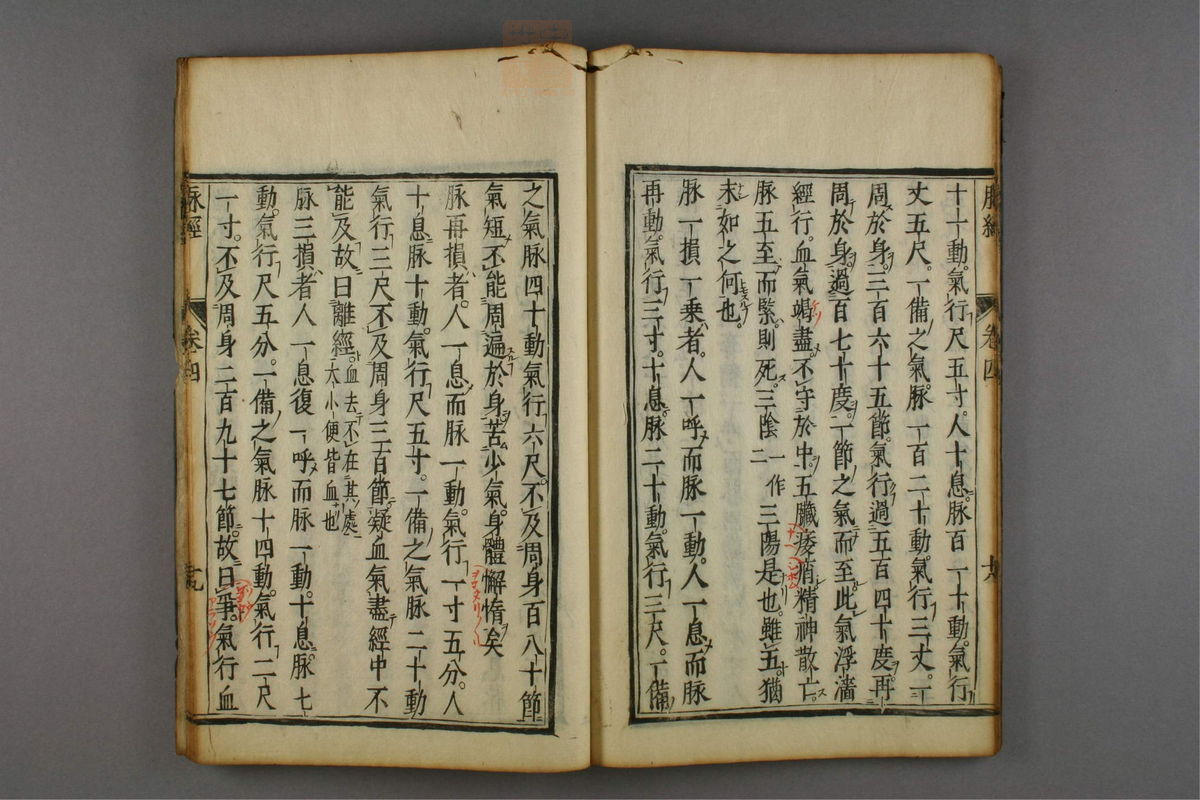 十一動氣行尺五寸人十息脉百一十動氣行
丈五尺一備之氣脉一百二十動氣行三丈一
周於身三百六十五節氣行過五百四十度再
周於身過百七十度一節之氣而至此氣浮濇
經行血氣竭盡不守於中五臟痿痟精神散亡
脉五至而緊則死三陰一作二三陽是也雖五猶
末如之何也
脉一損一乗者人一呼而脉一動人一息而脉
再動氣行三寸十息脉二十動氣行三尺一備
之氣脉四十動氣行六尺不及周身百八十節
氣短不能周遍於身苦少氣身體懈惰矣
脉再損者人一息而脉一動氣行一寸五分人
十息脉十動氣行尺五寸一備之氣脉二十動
氣行三尺不及周身三百節凝血氣盡經中不
能及故曰離經血去不在其處大小便皆血也
脉三損者人一息復一呼而脉一動十息脉七
動氣行尺五分一備之氣脉十四動氣行二尺
一寸不及周身二百九十七節故曰爭氣行血
脉經
卷四